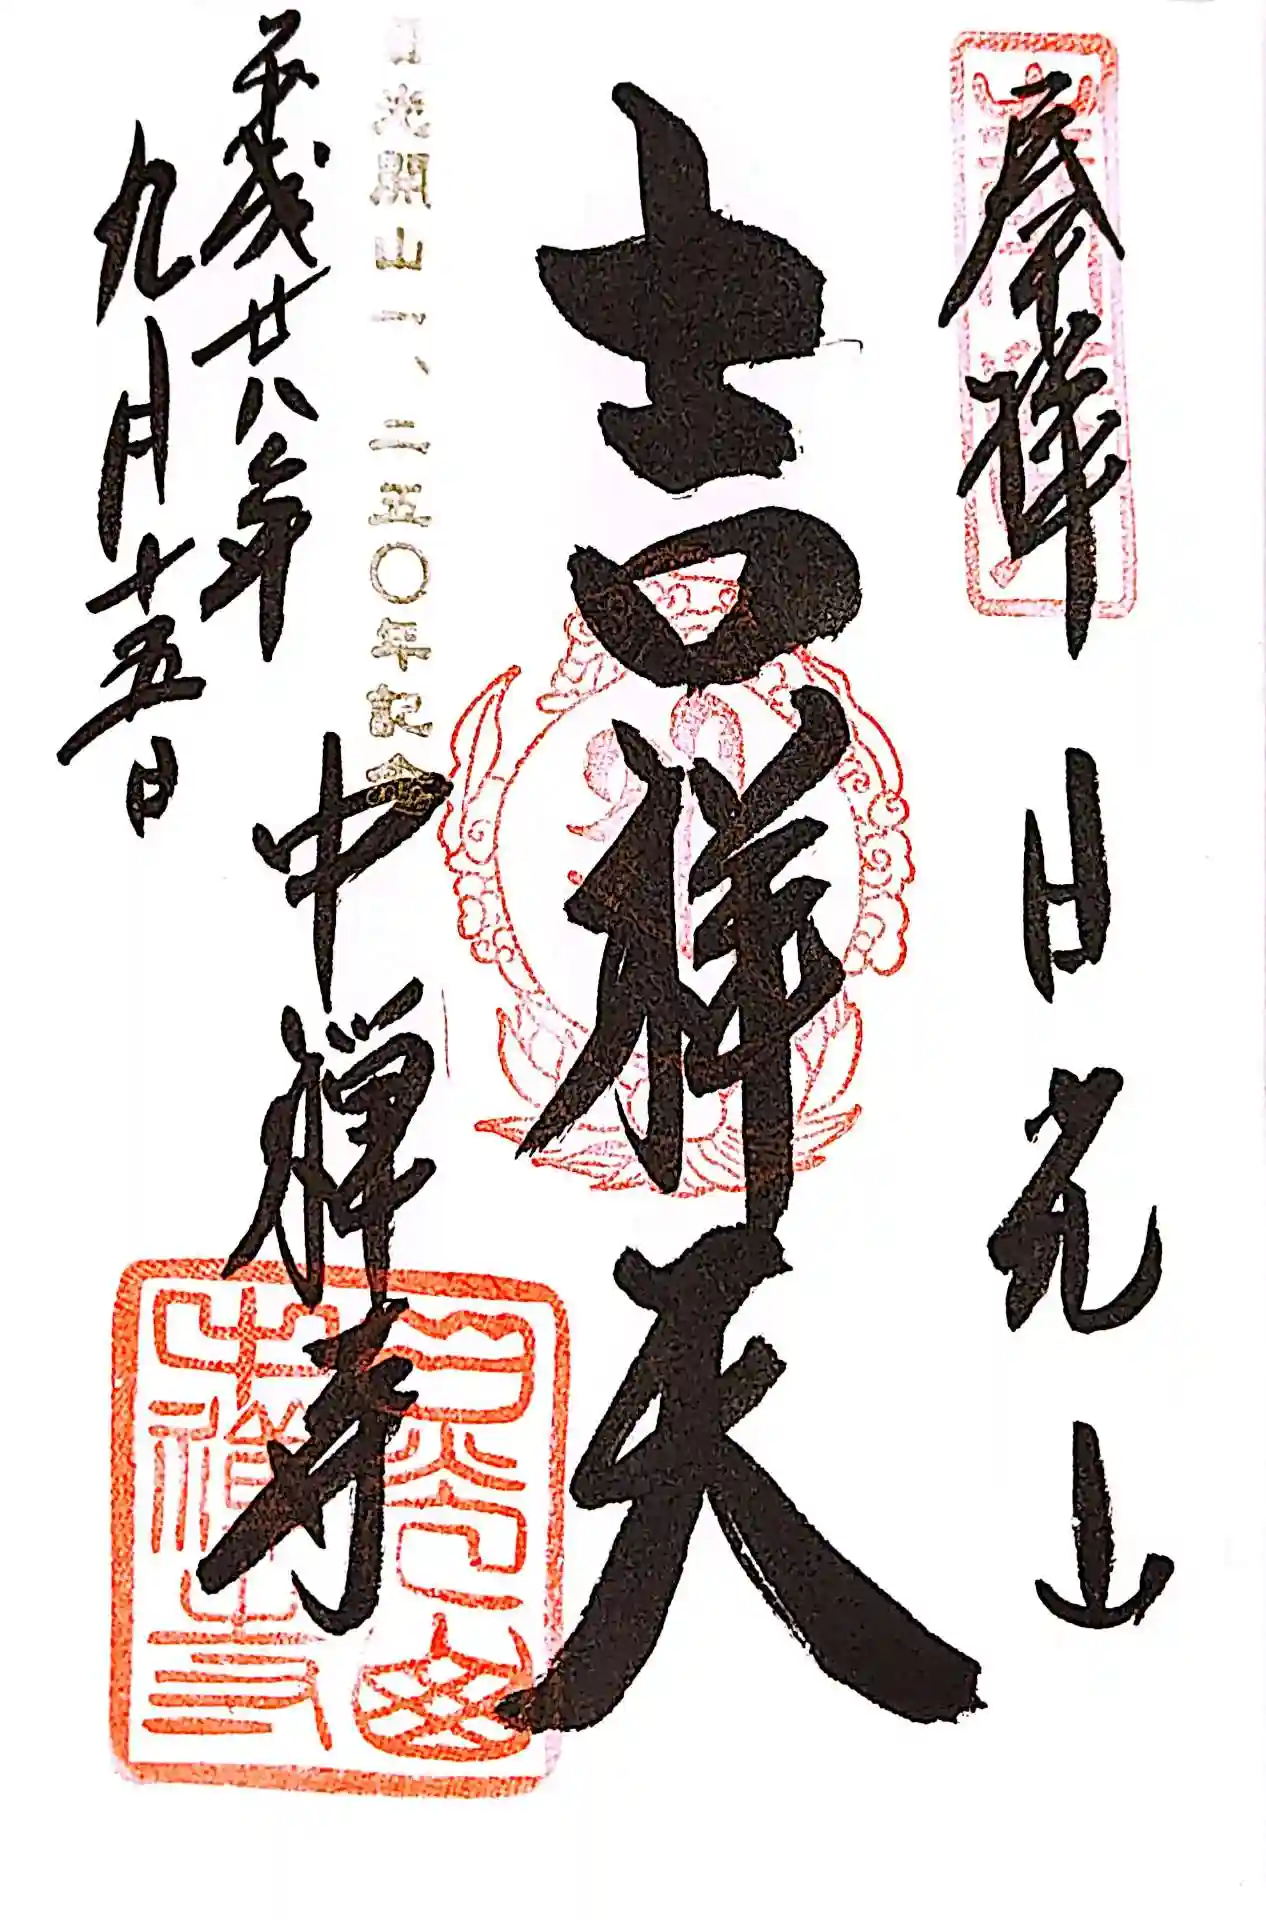 奉拝 日光山
吉祥天
日光開山一、二五〇年記念
中禅寺
平成廿八年
九月十五日
日光山
中禅寺